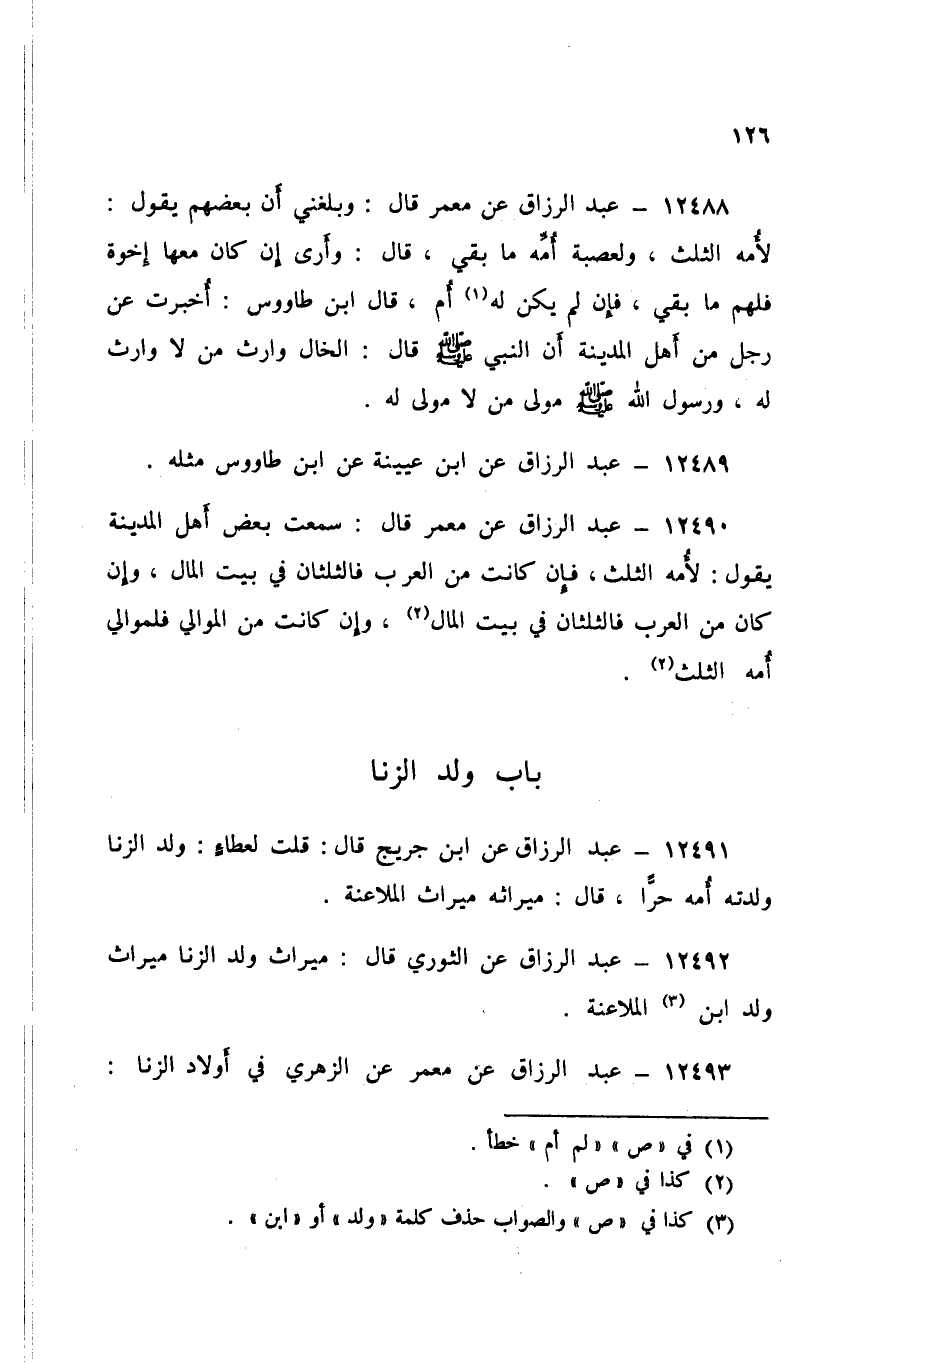 ١٢٦
١٢٤٨٨ – عبد الرزاق عن معمر قال : وبلغني أَن بعضهم يقول :
لأُمه الثلث ، ولعصبة أُمِّه ما بقي ، قال : وأَرى إِن كان معها إخوة
فلهم ما بقي ، فإِن لم يكن له(١) أُم ، قال ابن طاووس : أُخبرت عن
رجل من أَهل المدينة أَن النبي ﷺ قال : الخال وارث من لا وارث
له ، ورسول الله ﷺ مولى من لا مولى له .
١٢٤٨٩ – عبد الرزاق عن ابن عيينة عن ابن طاووس مثله .
١٢٤٩٠ – عبد الرزاق عن معمر قال : سمعت بعض أَهل المدينة
يقول : لأُمه الثلث ، فإِن كانت من العرب فالثلثان في بيت المال ، وإن
كان من العرب فالثلثان في بيت المال(٢) ، وإن كانت من الموالي فلموالي
أُمه الثلث(٢) .
باب ولد الزنا
١٢٤٩١ – عبد الرزاق عن ابن جريج قال : قلت لعطاءٍ : ولد الزنا
ولدته أُمه حرًّا ، قال : ميراثه ميراث الملاعنة .
١٢٤٩٢ – عبد الرزاق عن الثوري قال : ميراث ولد الزنا ميراث
ولد ابن (٣) الملاعنة .
١٢٤٩٣ – عبد الرزاق عن معمر عن الزهري في أَولاد الزنا :
(١) في « ص » « لم أم » خطأ .
(٢) كذا في « ص » .
(٣) كذا في « ص » والصواب حذف كلمة « ولد » أو « ابن » .